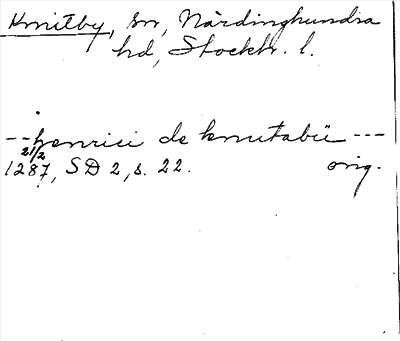 Knutby, sn, Närdinghundra
hd, Stockh. l.
--henrici de knutabü---
21/2
1287, SD 2, s. 22. orig.